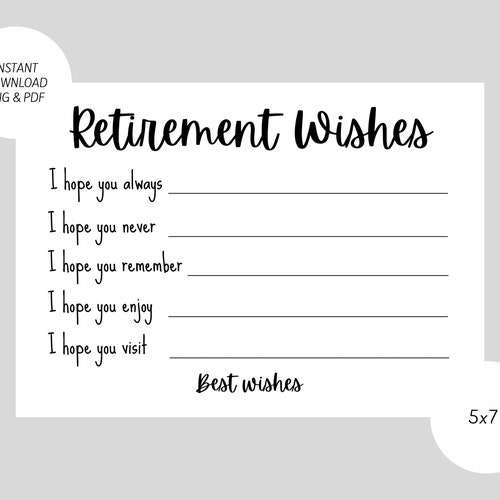 NSTANT
WNLOAD
G & PDF
Retirement Wishes
I hope you always
I hope you never
I hope you remember
I hope you enjoy
I hope you visit
Best wishes
5x7